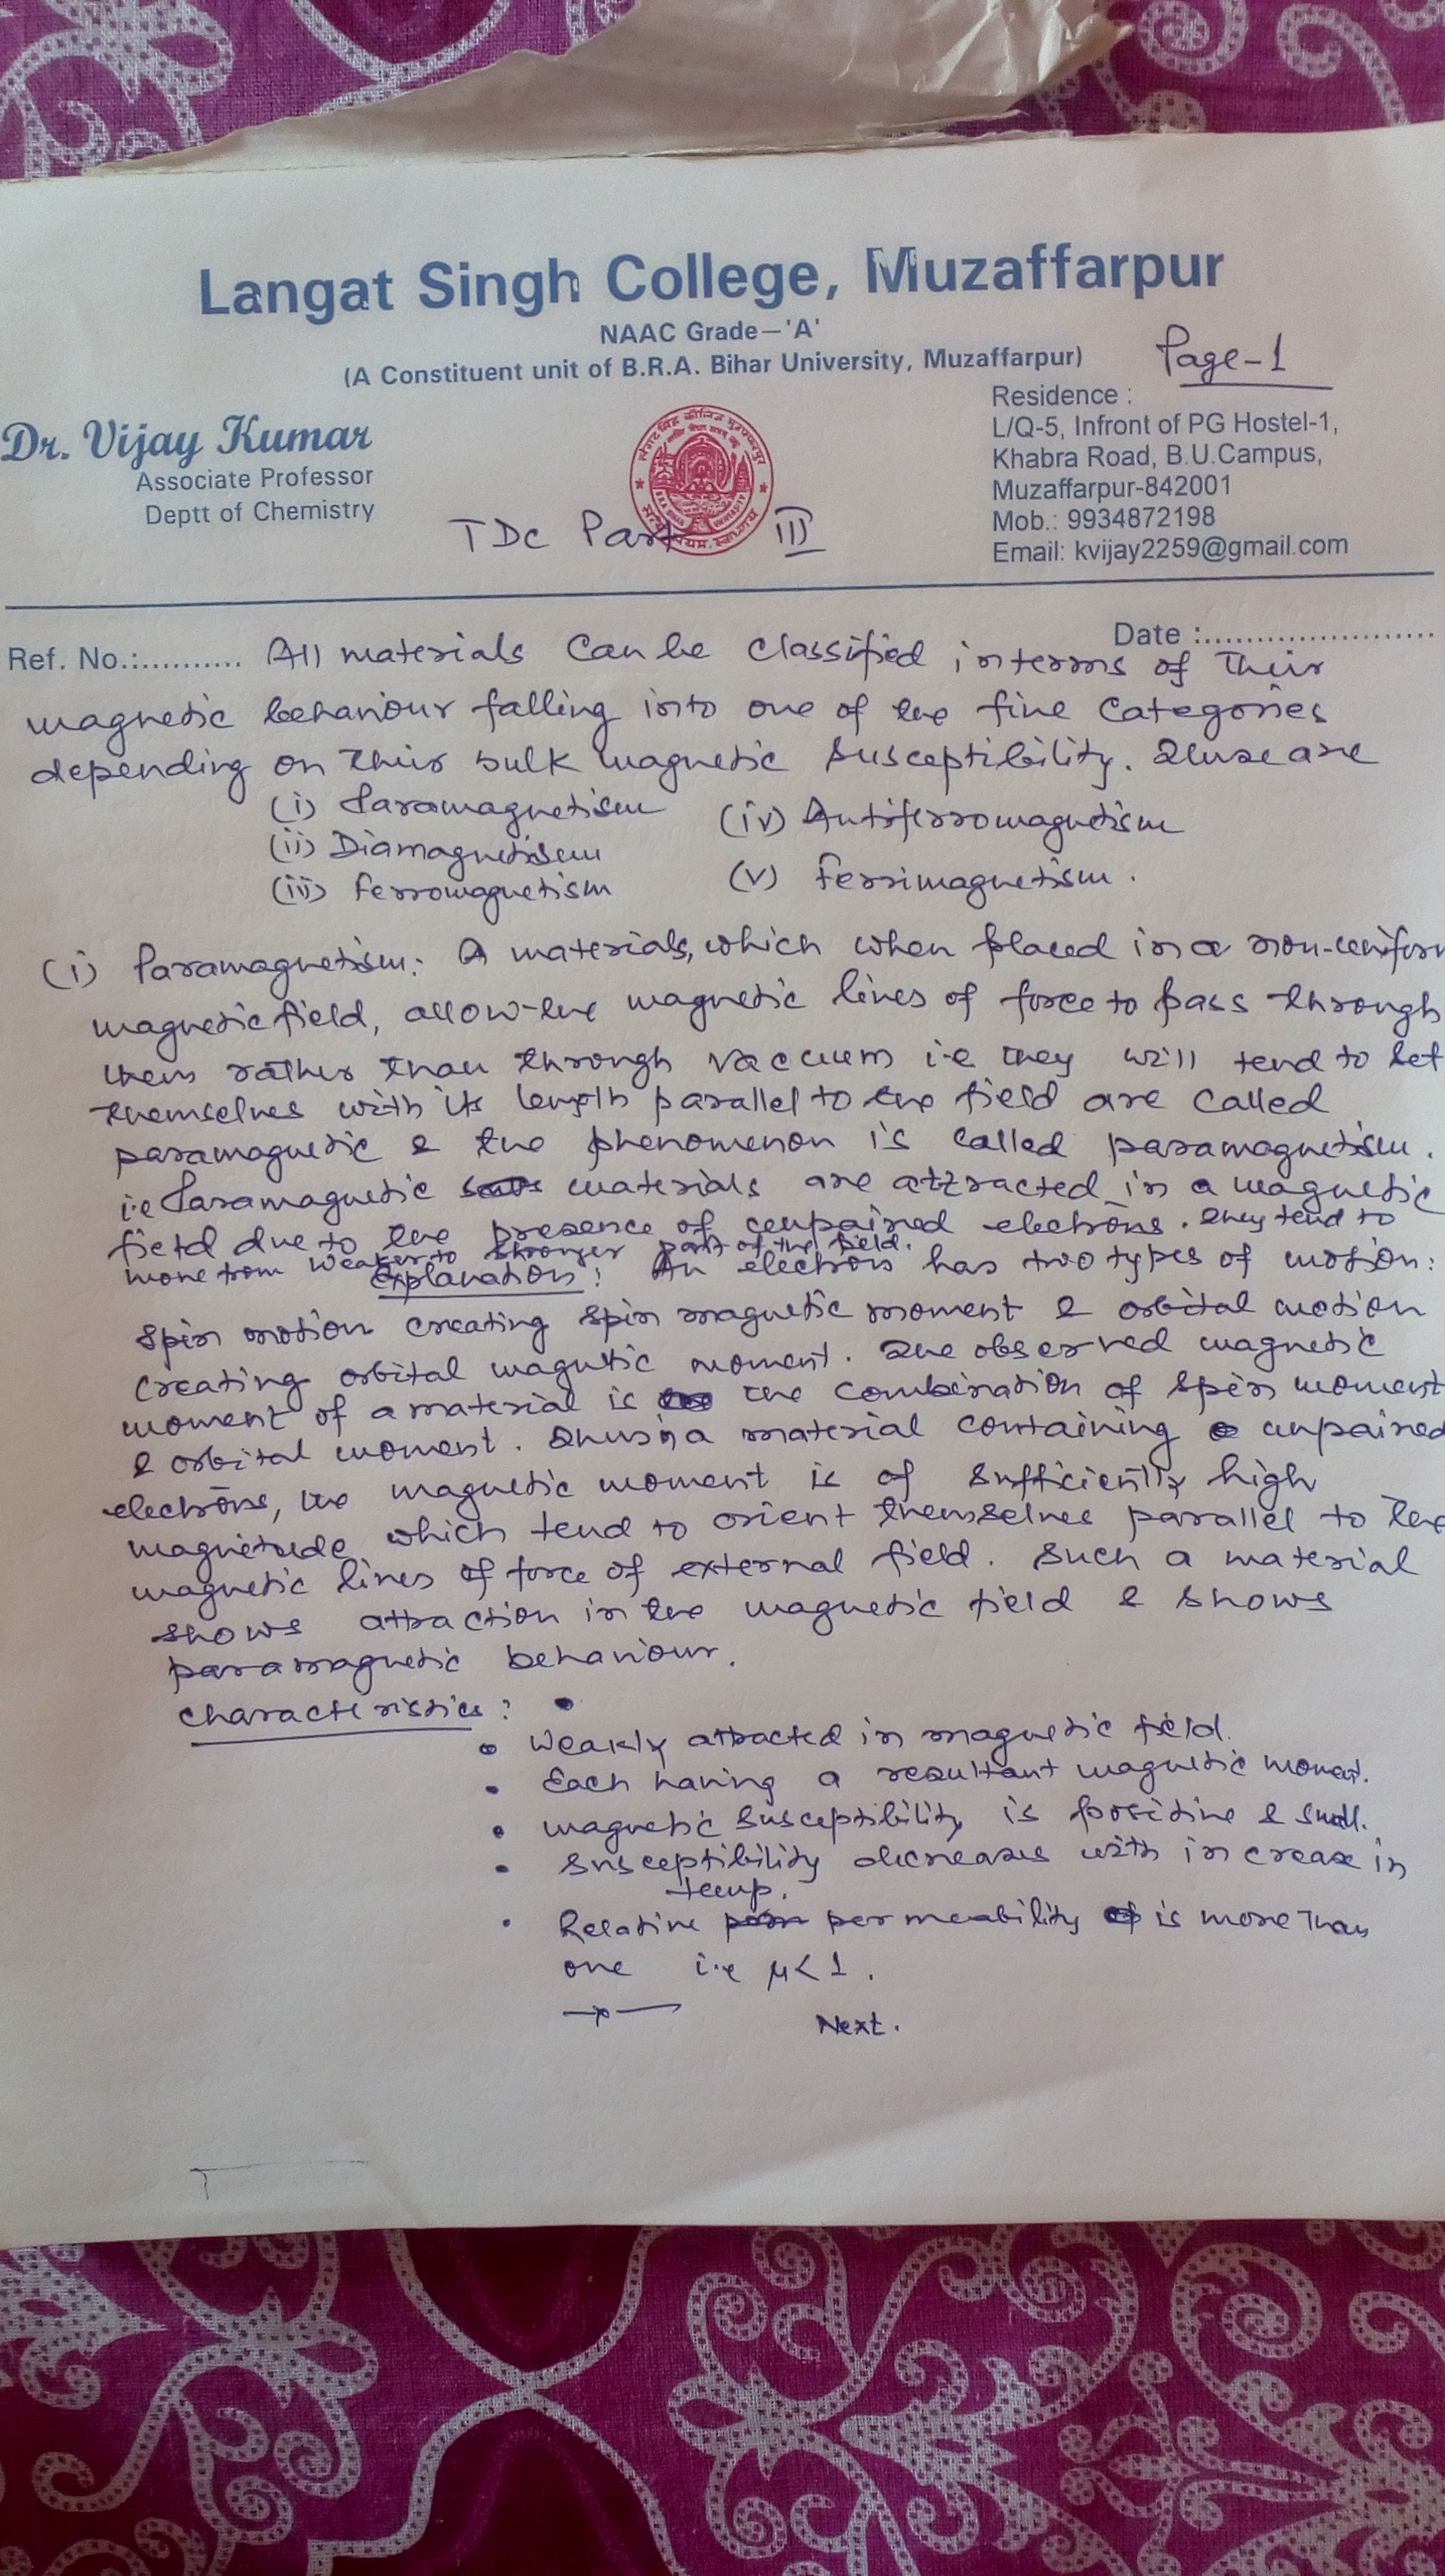 Langat Singh College, Muzaffarpur
NAAC Grade–'A'
(A Constituent unit of B.R.A. Bihar University, Muzaffarpur)
Page-1
Dr. Vijay Kumar
Associate Professor
Deptt of Chemistry
Residence :
L/Q-5, Infront of PG Hostel-1,
Khabra Road, B.U.Campus,
Muzaffarpur-842001
Mob.: 9934872198
Email: kvijay2259@gmail.com
TDC Part III
Date :.......................
Ref. No.:.......... All materials can be classified in terms of their
magnetic behaviour falling into one of the five categories
depending on their bulk magnetic susceptibility. These are
(i) Paramagnetism (iv) Antiferromagnetism
(ii) Diamagnetism
(iii) Ferromagnetism (v) Ferrimagnetism.
(i) Paramagnetism: A materials, which when placed in a non-uniform
magnetic field, allow the magnetic lines of force to pass through
them rather than through vaccuum i.e they will tend to set
themselves with its length parallel to the field are called
paramagnetic & the phenomenon is called paramagnetism.
i.e Paramagnetic materials are attracted in a magnetic
field due to the presence of unpaired electrons. They tend to
move from weaker to stronger part of the field.
Explanation: An electron has two types of motion:
Spin motion creating spin magnetic moment & orbital motion
creating orbital magnetic moment. The observed magnetic
moment of a material is the combination of spin moment
& orbital moment. Thus in a material containing unpaired
electrons, the magnetic moment is of sufficiently high
magnitude which tend to orient themselves parallel to the
magnetic lines of force of external field. Such a material
shows attraction in the magnetic field & shows
paramagnetic behaviour.
Characteristics:
• Weakly attracted in magnetic field.
• Each having a resultant magnetic moment.
• magnetic susceptibility is positive & small.
• Susceptibility decreases with increase in
temp.
• Relative permeability is more than
one i.e μ<1.
Next.